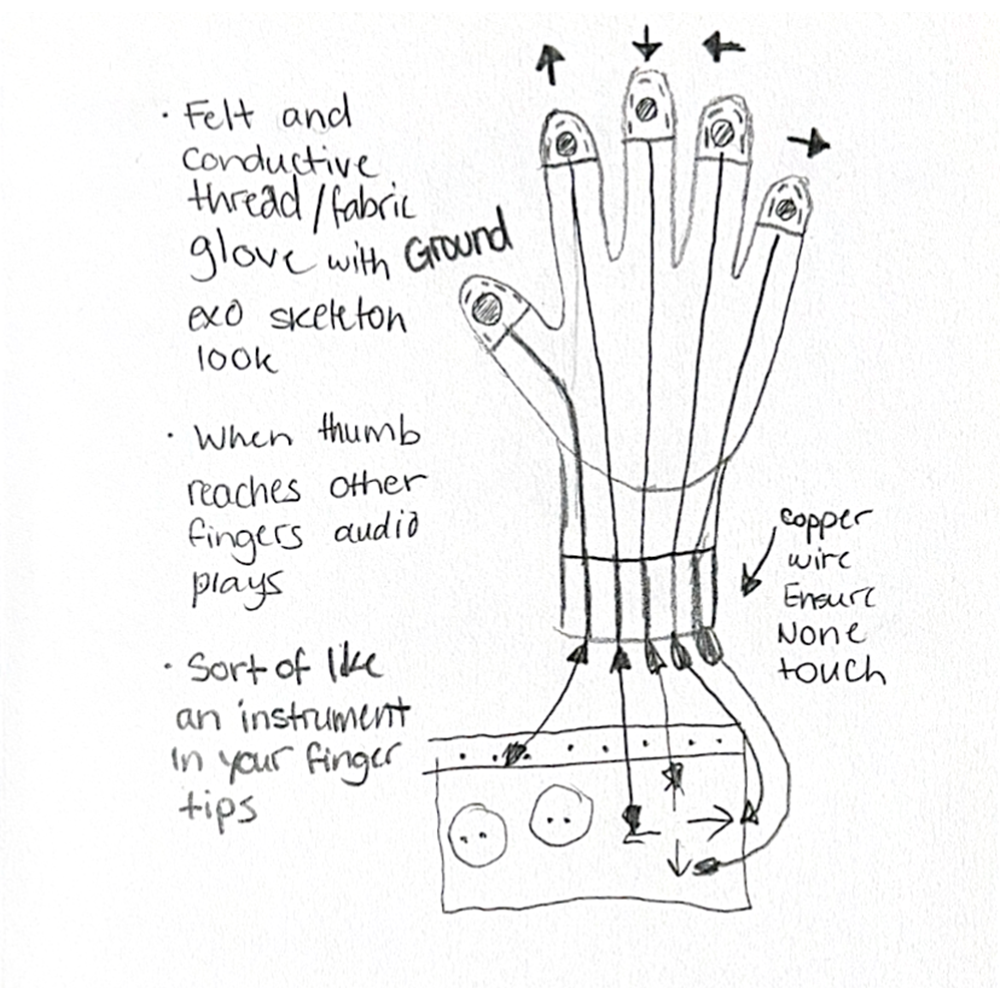 · Felt and
conductive
thread/fabric
glove with
exo skeleton
look
· When thumb
reaches other
fingers audio
plays
· Sort of like
an instrument
in your finger
tips
Ground
copper
wire
Ensure
None
touch